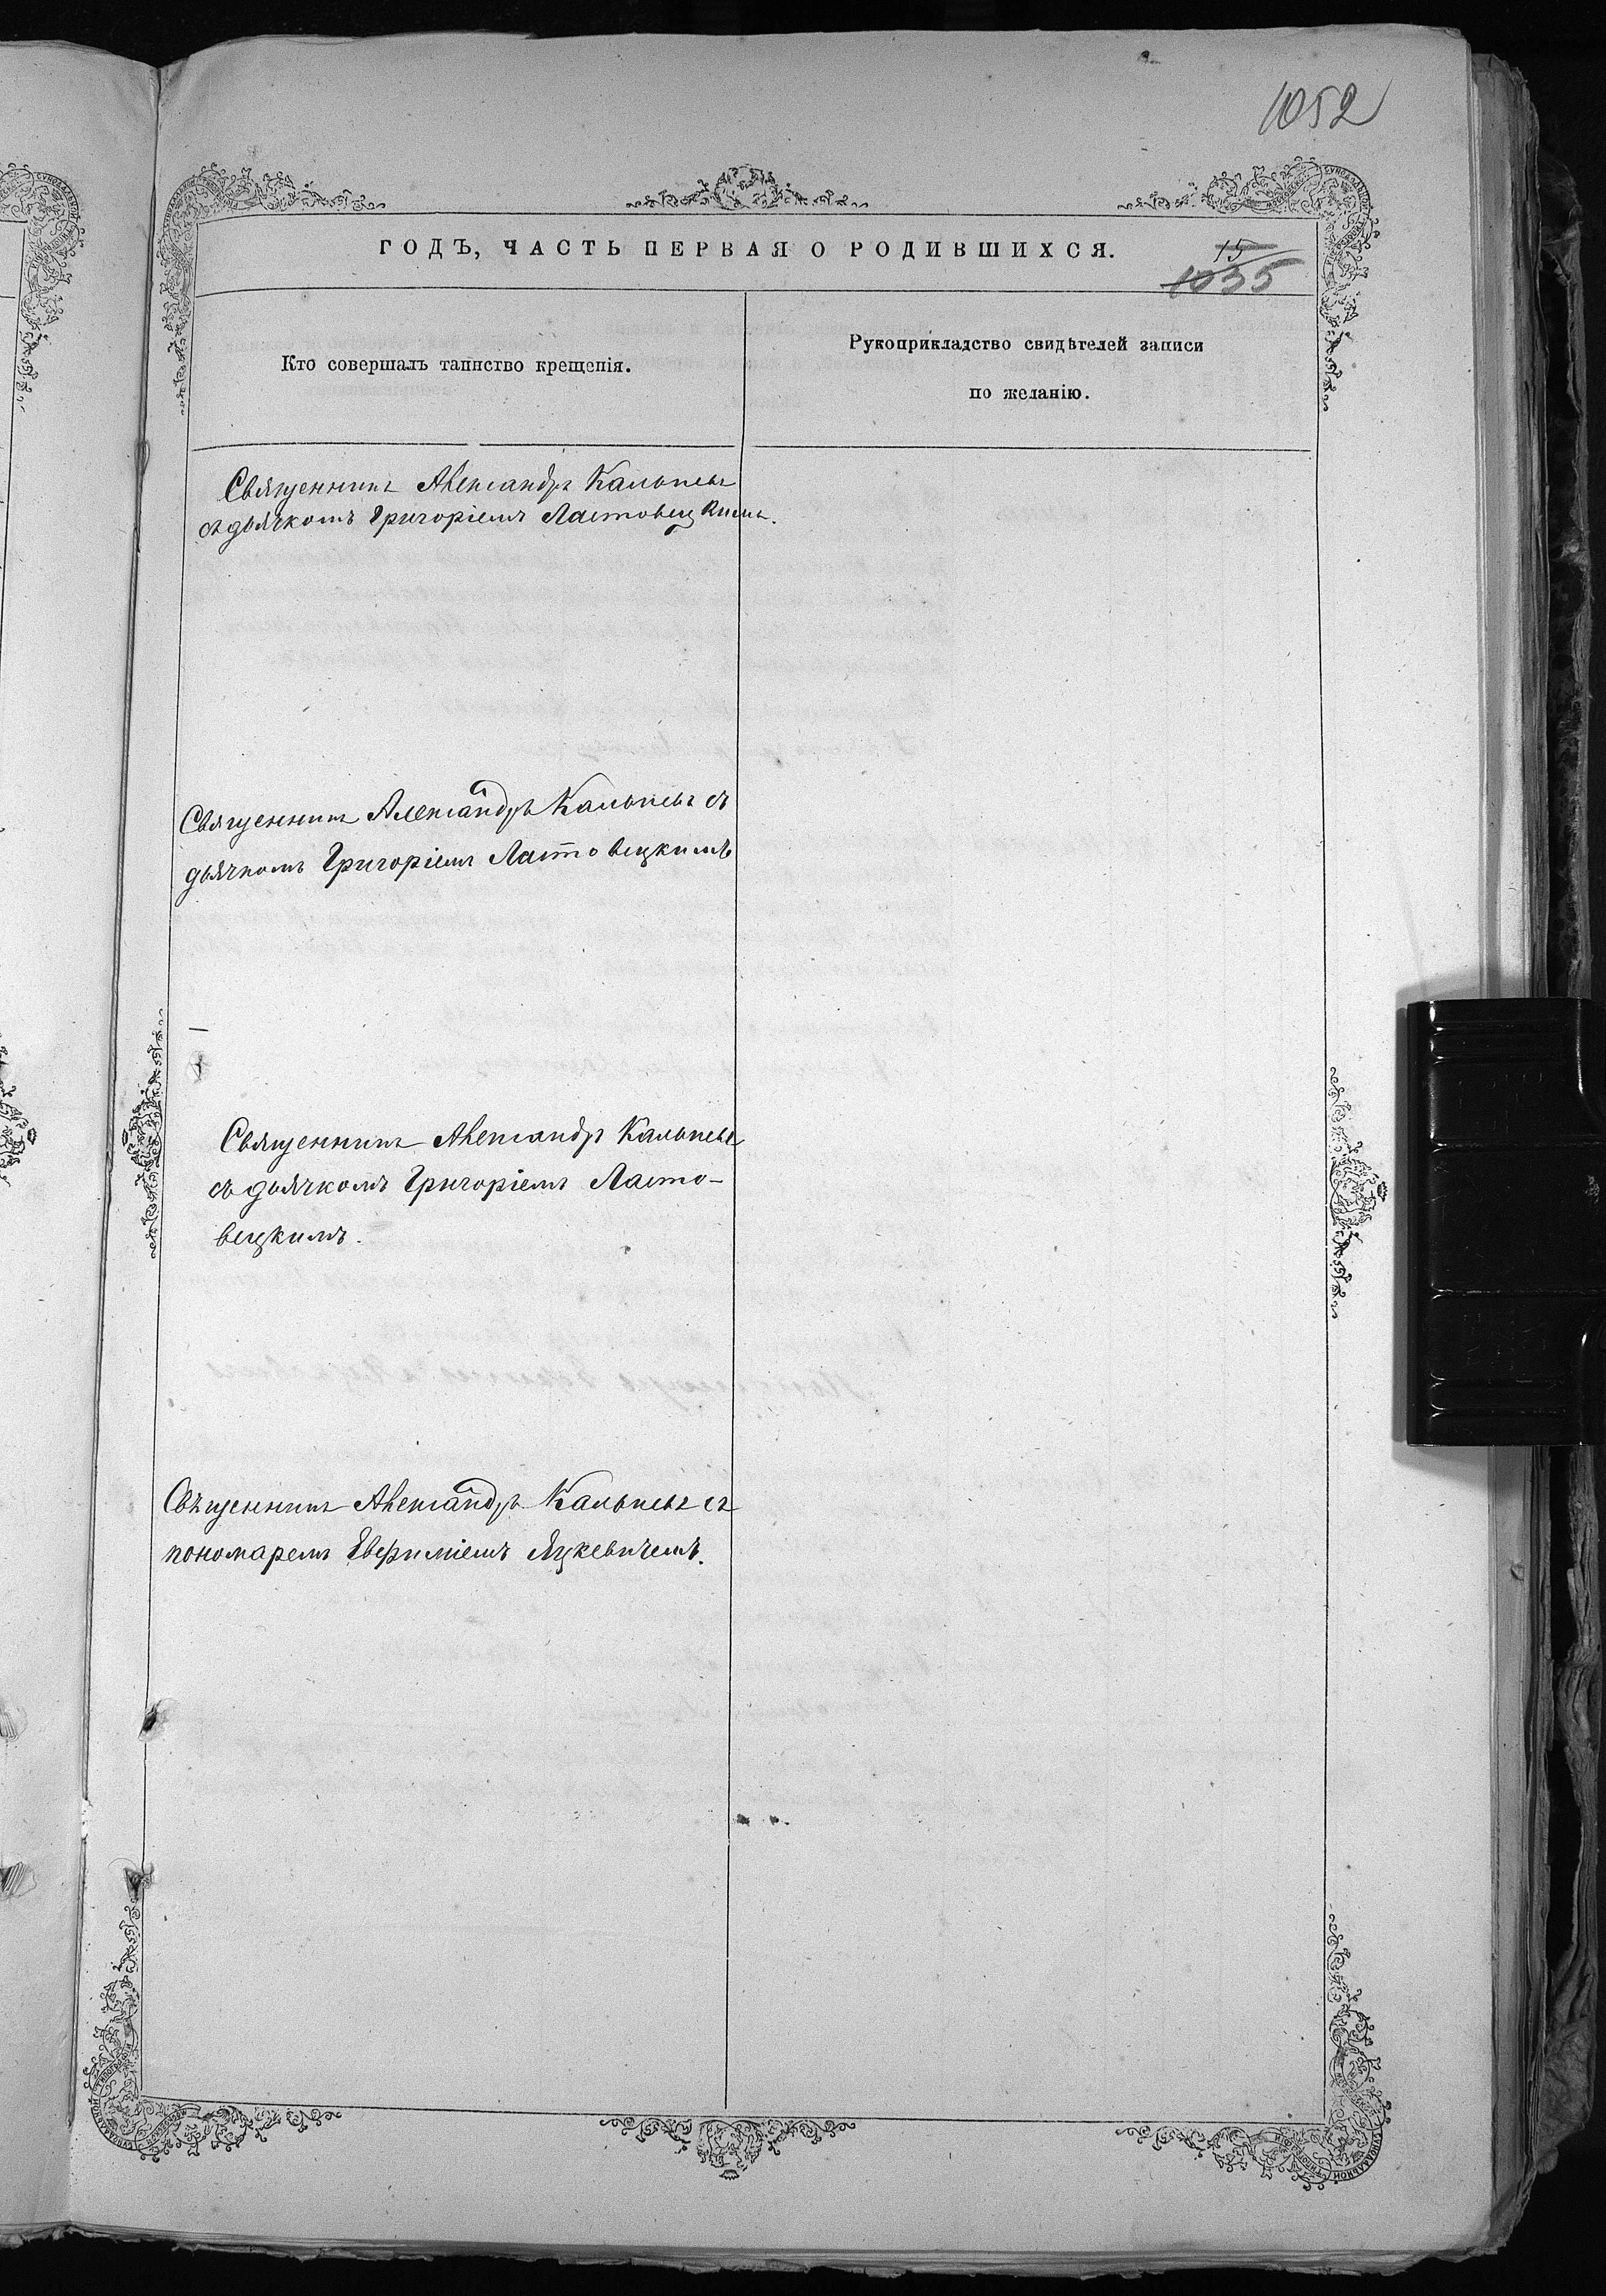 1052
ГОДЪ, ЧАСТЬ ПЕРВАЯ О РОДИВШИХСЯ.
15
1035
Кто совершалъ таинство крещенія.
Рукоприкладство свидѣтелей записи
по желанію.
Священникъ Александръ Кальневъ
съ дьячкомъ Григоріемъ Ластовецкимъ.
Священникъ Александръ Кальневъ съ
дьячкомъ Григоріемъ Ластовецкимъ
Священникъ Александръ Кальневъ
съ дьячкомъ Григоріемъ Ласто-
вецкимъ.
Священникъ Александръ Кальневъ съ
пономаремъ Евфиміемъ Яцкевичемъ.